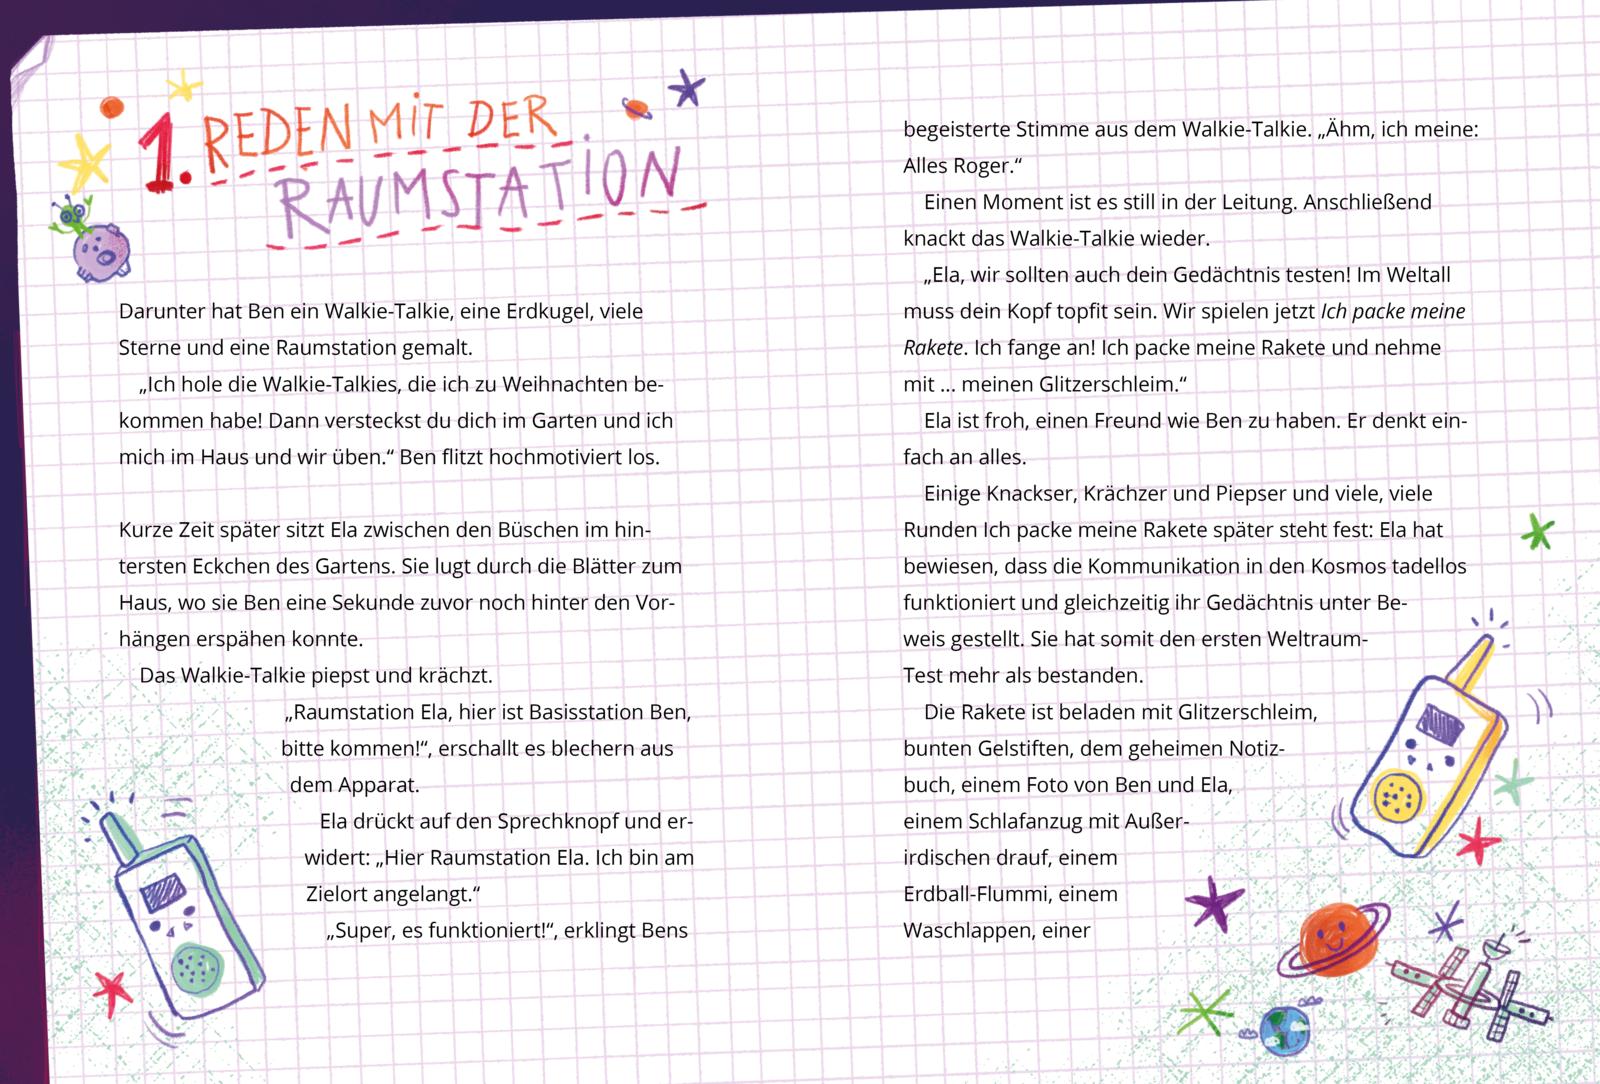 1. REDEN MIT DER
RAUMSTATION
Darunter hat Ben ein Walkie-Talkie, eine Erdkugel, viele
Sterne und eine Raumstation gemalt.
„Ich hole die Walkie-Talkies, die ich zu Weihnachten be-
kommen habe! Dann versteckst du dich im Garten und ich
mich im Haus und wir üben.“ Ben flitzt hochmotiviert los.
Kurze Zeit später sitzt Ela zwischen den Büschen im hin-
tersten Eckchen des Gartens. Sie lugt durch die Blätter zum
Haus, wo sie Ben eine Sekunde zuvor noch hinter den Vor-
hängen erspähen konnte.
Das Walkie-Talkie piepst und krächzt.
„Raumstation Ela, hier ist Basisstation Ben,
bitte kommen!“, erschallt es blechern aus
dem Apparat.
Ela drückt auf den Sprechknopf und er-
widert: „Hier Raumstation Ela. Ich bin am
Zielort angelangt.“
„Super, es funktioniert!“, erklingt Bens
begeisterte Stimme aus dem Walkie-Talkie. „Ähm, ich meine:
Alles Roger.“
Einen Moment ist es still in der Leitung. Anschließend
knackt das Walkie-Talkie wieder.
„Ela, wir sollten auch dein Gedächtnis testen! Im Weltall
muss dein Kopf topfit sein. Wir spielen jetzt Ich packe meine
Rakete. Ich fange an! Ich packe meine Rakete und nehme
mit ... meinen Glitzerschleim.“
Ela ist froh, einen Freund wie Ben zu haben. Er denkt ein-
fach an alles.
Einige Knackser, Krächzer und Piepser und viele, viele
Runden Ich packe meine Rakete später steht fest: Ela hat
bewiesen, dass die Kommunikation in den Kosmos tadellos
funktioniert und gleichzeitig ihr Gedächtnis unter Be-
weis gestellt. Sie hat somit den ersten Weltraum-
Test mehr als bestanden.
Die Rakete ist beladen mit Glitzerschleim,
bunten Gelstiften, dem geheimen Notiz-
buch, einem Foto von Ben und Ela,
einem Schlafanzug mit Außer-
irdischen drauf, einem
Erdball-Flummi, einem
Waschlappen, einer